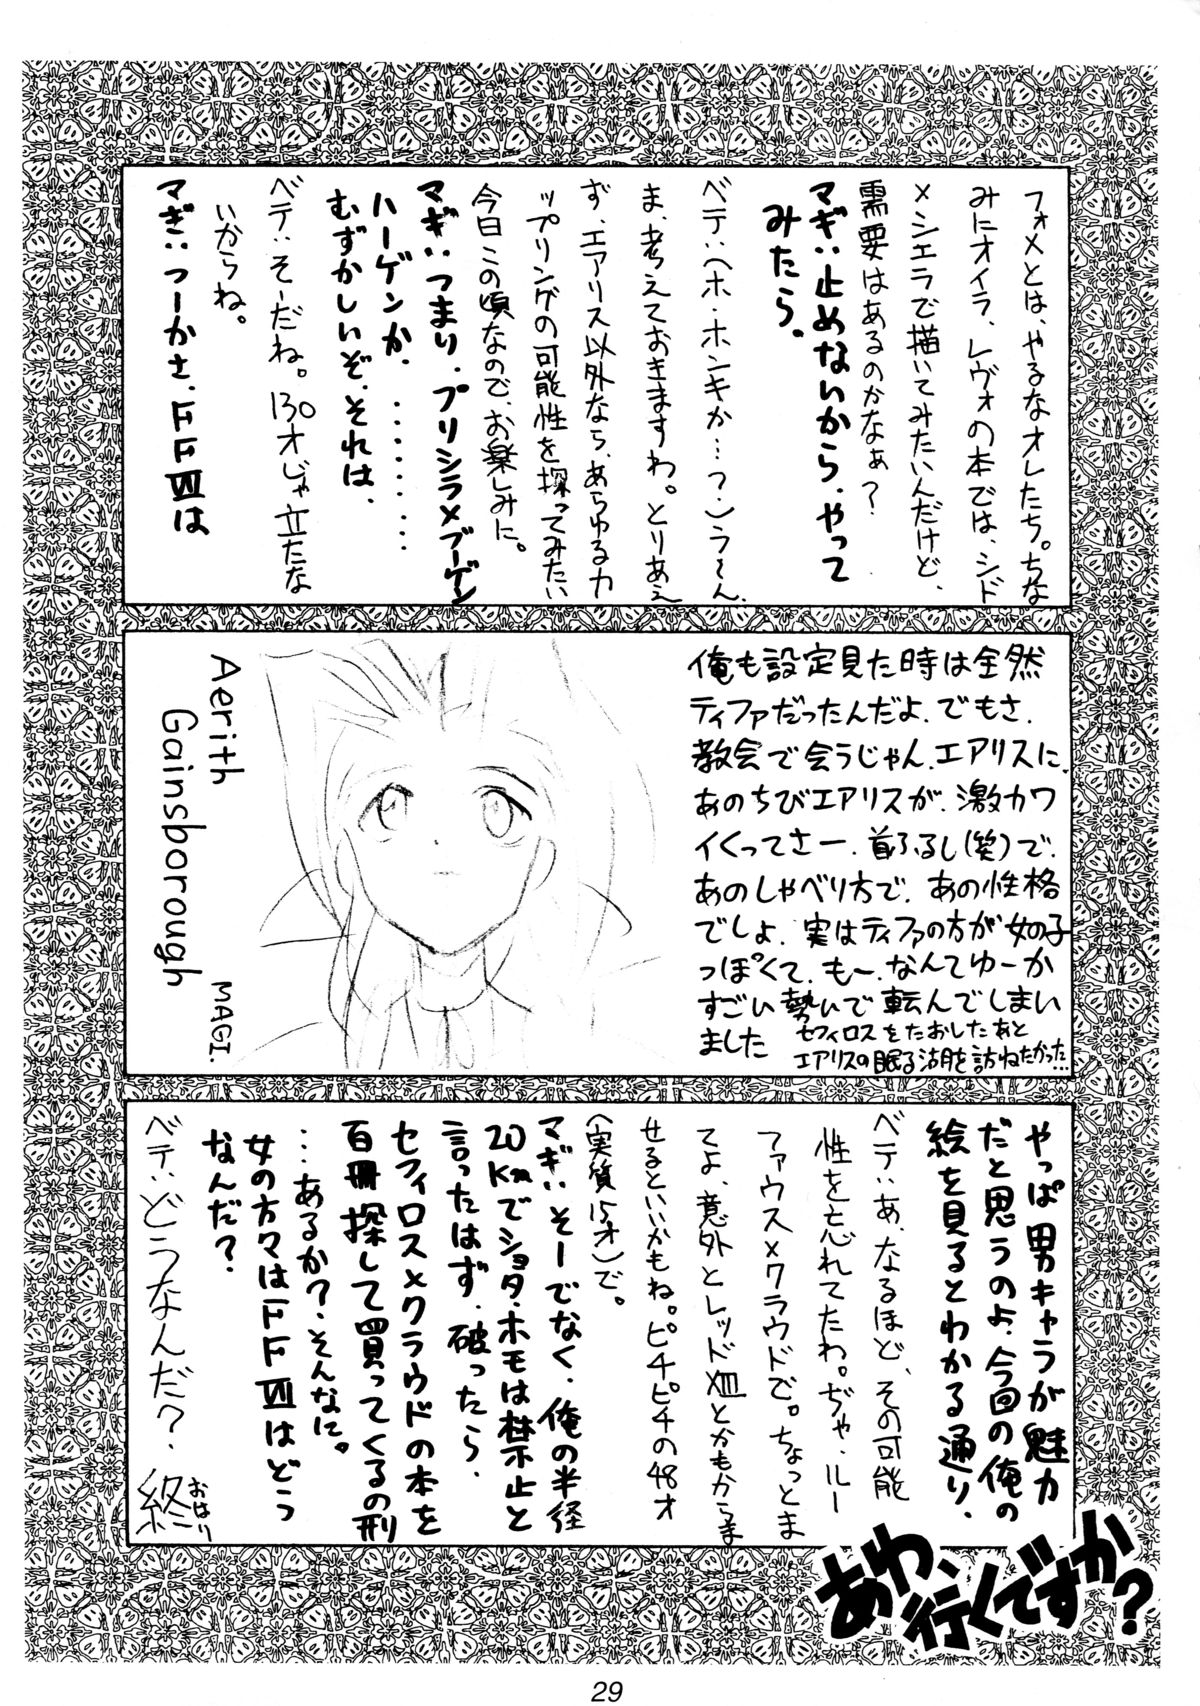 フォメとは、やるなオレたち。ちな
みにオイラ、レヴォの本では、シド
×シエラで描いてみたいんだけど、
需要はあるのかなぁ?
マギ∵止めないから、やって
みたら。
ベテ∵へホ・ホンキか…?)う〜ん、
ま、考えておきますわ。とりあえ
ず、エアリス以外なら、あらゆるカ
ップリングの可能性を探ってみたい
今日この頃なので、お楽しみに。
マギ∵つまり、プリシラ×ブーゲン
ハーゲンか、・・・・・・・
むずかしいぞ、それは、
ベテ∵そーだね。130才じゃ立たな
いからね。
マギ∵つーかさ、FFⅦは
俺も設定見た時は全然
ティファだったんだよ、でもさ、
教会で会うじゃん、エアリスに、
あのちびエアリスが、激カワ
イくってさー、首ふるし(笑)で、
あのしゃべり方で、あの性格
でしょ、実はティファの方が女の子
っぽくて、もー、なんてゆーか
すごい勢いで転んでしまい
ました
セフィロスをたおしたあと
エアリスの眠る湖を訪ねたかった…
Aerith
Gainsborough
MAGI.
やっぱ男キャラが魅力
だと思うのよ、今回の俺の
絵を見るとわかる通り、
ベテ∵あ、なるほど、その可能
性を忘れてたわ。ぢゃ、ルー
ファウス×クラウドで。ちょっとま
てよ、意外とレッドⅩⅢとかもからま
せるといいかもね。ピチピチの48才
(実質15才)で。
マギ∵そーでなく、俺の半径
20Kmでショタ・ホモは禁止と
言ったはず、破ったら、
セフィロス×クラウドの本を
百冊探して買ってくるの刑
…あるか?、そんなに。
女の方々はFFⅦはどう
なんだ?
ベテ∵どうなんだ?、
終
おはり
あわ、行くですか?
29